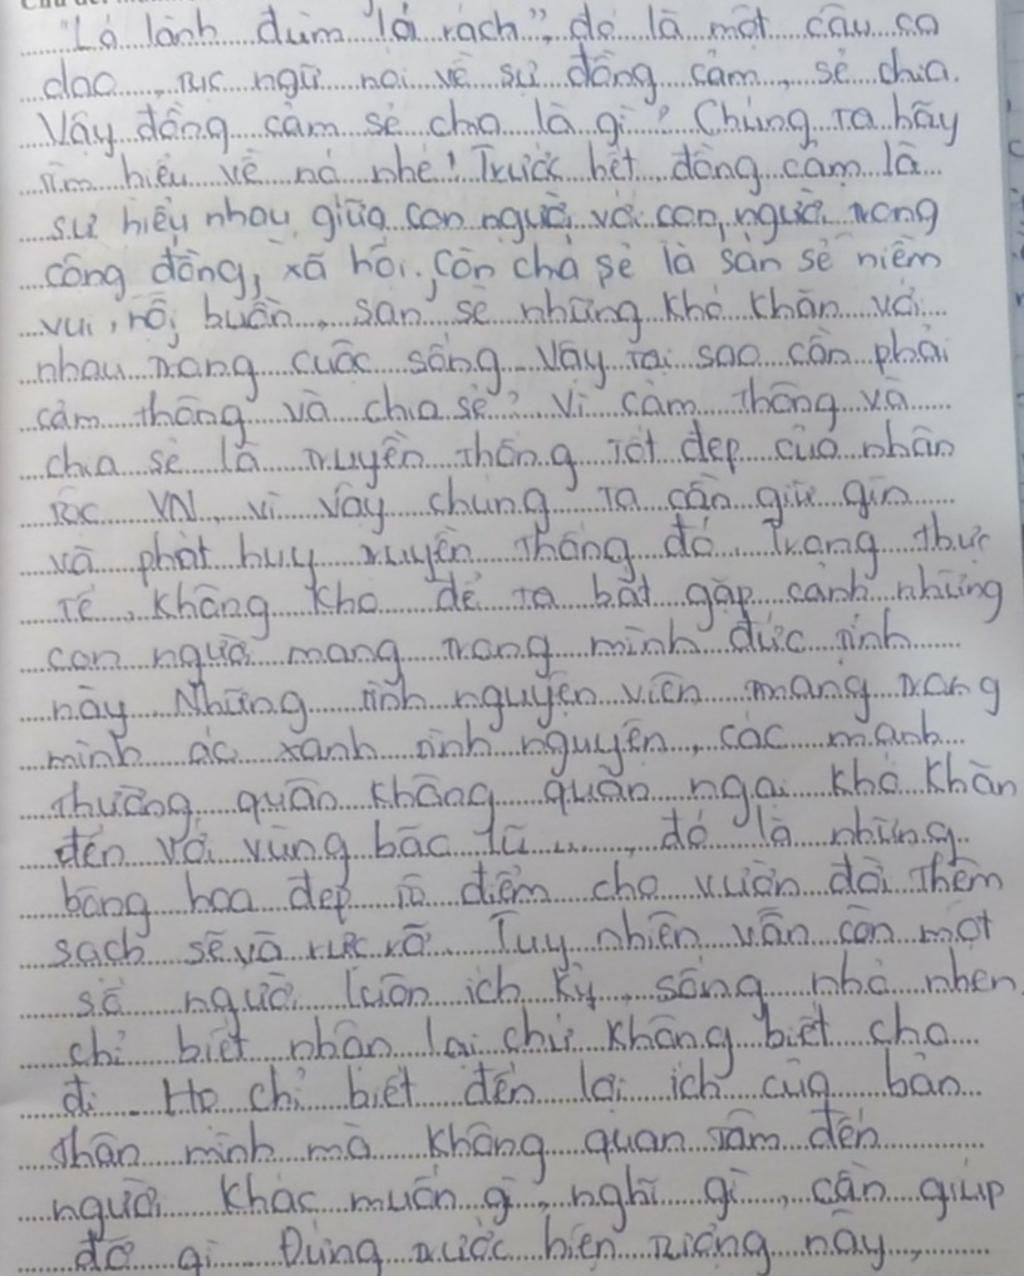 "Lá lành đùm lá rách", đó là một câu ca
dao, tục ngữ nói về sự đồng cảm, sẻ chia.
Vậy đồng cảm sẻ chia là gì? Chúng ta hãy
tìm hiểu về nó nhé! Trước hết, đồng cảm là
sự hiểu nhau giữa con người với con người trong
cộng đồng, xã hội. Còn chia sẻ là san sẻ niềm
vui, nỗi buồn, san sẻ những khó khăn với
nhau trong cuộc sống. Vậy tại sao cần phải
cảm thông và chia sẻ? Vì cảm thông và
chia sẻ là truyền thống tốt đẹp của nhân
tộc VN, vì vậy chúng ta cần giữ gìn
và phát huy truyền thống đó. Trong thực
tế, không khó để ta bắt gặp cảnh những
con người mang trong mình đức tính
này. Những tình nguyện viên mang trong
mình áo xanh tình nguyện, các mạnh
thường quân không quản ngại khó khăn
đến với vùng bão lũ..., đó là những
bông hoa đẹp tô điểm cho vườn đời thêm
sạch sẽ và rực rỡ. Tuy nhiên vẫn còn một
số người luôn ích kỷ, sống nhỏ nhen,
chỉ biết nhận lại chứ không biết cho
đi. Họ chỉ biết đến lợi ích của bản
thân mình mà không quan tâm đến
người khác muốn gì, nghĩ gì, cần giúp
đỡ gì. Đứng trước hiện tượng này,